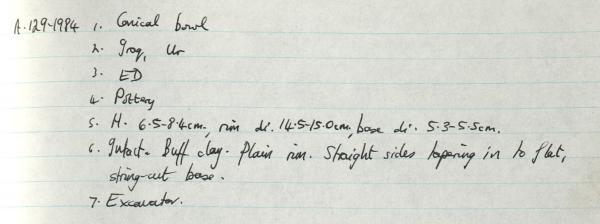 A.129-1984 1. Conical bowl
2. Iraq, Ur
3. ED
4. Pottery
5. H. 6.5-8.4cm, rim di. 14.5-15.0cm, base di. 5.3-5.5cm.
6. Intact. Buff clay. Plain rim. Straight sides tapering in to flat,
string-cut base.
7. Excavator.